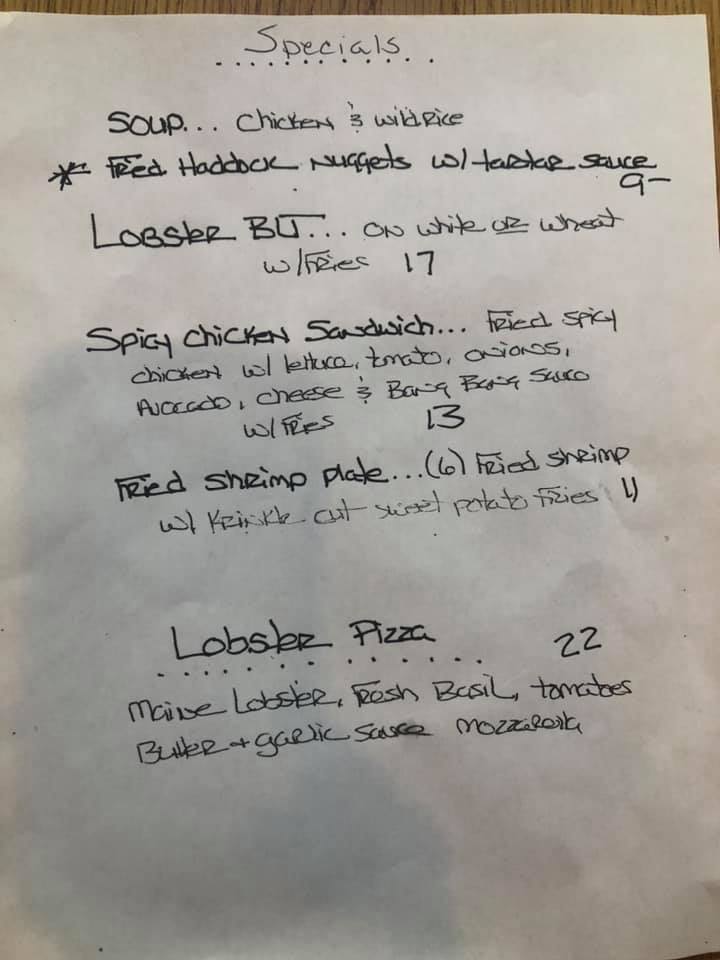 Specials
Soup... Chicken & Wild Rice
* Fried Haddock Nuggets w/ tartar sauce
9-
Lobster BLT... on white or wheat
w/ Fries 17
Spicy Chicken Sandwich... Fried spicy
chicken w/ lettuce, tomato, onions,
Avocado, cheese & Bang Bang Sauce
w/ Fries 13
Fried shrimp plate...(6) Fried shrimp
w/ Krinkle cut sweet potato Fries
Lobster Pizza 22
Maine Lobster, Fresh Basil, tomatoes
Butter + garlic sauce mozzarella